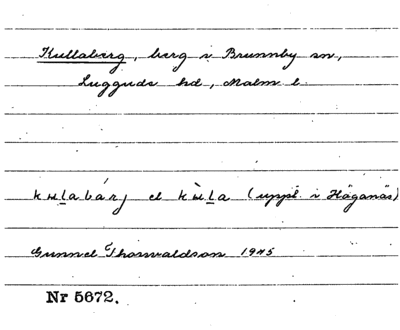 Kullaberg, berg i Brunnby sn,
Luggude hd, Malm l.
kuḻabárj el kùḻa (uppl. i Höganäs)
Gunnel Thorwaldson 1945
Nr 5672.